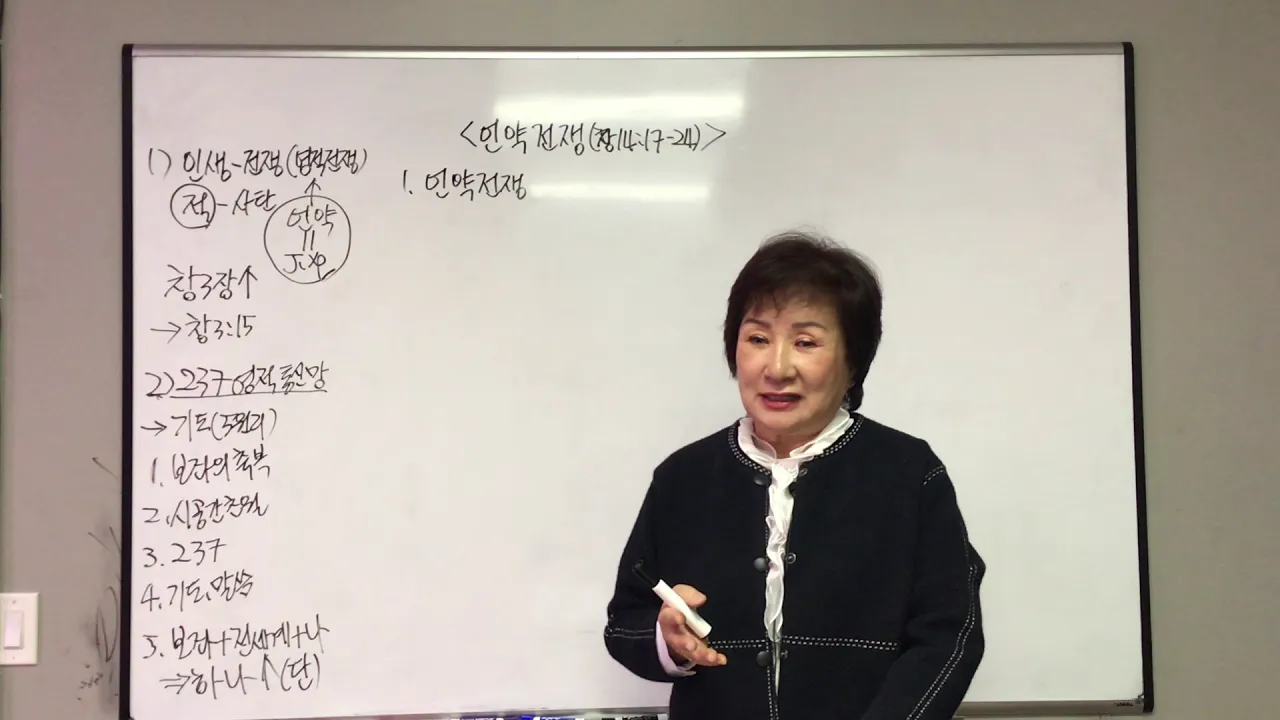 <언약전쟁(창14:17-24)>
1) 인생-전쟁(영적전쟁)
적-사탄
↑
언약
||
J.X.P
창3장↑
→창3:15
2) 237 영적통신망
→기도(5원리)
1. 보좌의축복
2. 시공간초월
3. 237
4. 기도, 말씀
5. 보좌+전세계+나
⇒하나↑(단)
1. 언약전쟁